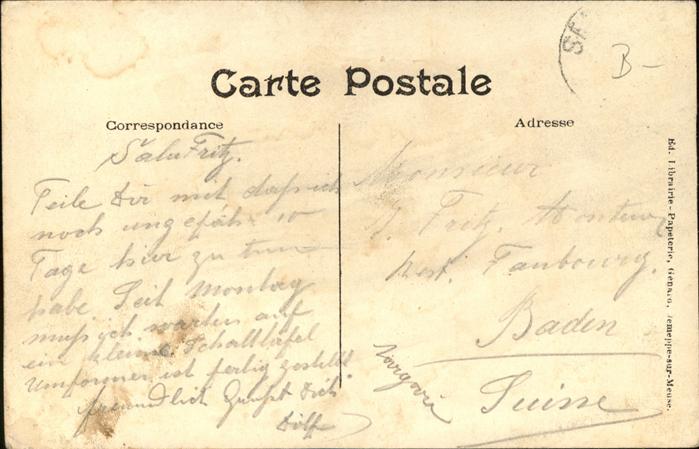 Carte Postale
SE
B-
Correspondance
Adresse
Salu Fritz.
Teile Dir mit, dass ich
noch ungefähr 10
Tage hier zu tun
habe. Seit Montag
muss ich warten auf
ein kleine Schalttafel
Umformer ist fertig gestellt
freundlich Grüsst Dich
Dölf
Monsieur
J. Fritz, Monteur
Rest. Faubourg.
Baden
Argovie
Suisse
Ed. Librairie-Papeterie, Génard, Jemeppe-sur-Meuse.